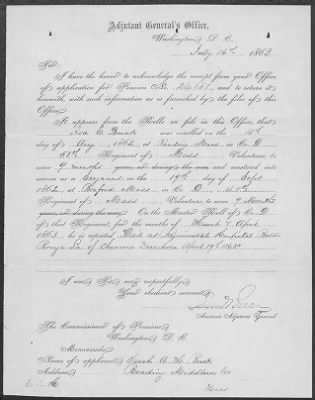 Adjutant General's Office,
Washington, D. C.
July 16th, 1863
Sir:
I have the honor to acknowledge the receipt from your Office
of application for Pension No. and to return it
herewith, with such information as is furnished by the files of this
Office.
It appears from the Rolls on file in this Office, that
was enrolled on the
day of Aug, 1862, at Reading Mass in Co. D
Regiment of Mass Volunteers, to serve
9 months years, or during the war, and mustered into
service as a Sergeant on the 19th day of Sept
1862, at Boxford Mass in Co. D
Regiment of Mass Volunteers, to serve 9 Months
years, or during the war. On the Muster Roll of Co. D
of that Regiment, for the months of March & April
1863, he is reported Died at Regimental Hospital Baton
Rouge La. of Chronic Diarrhoea April 19th 1863
I am, Sir, very respectfully,
Your obedient servant,
Assistant Adjutant General
The Commissioner of Pensions
Washington D. C.
Memoranda.
Name of applicant, Sarah A. M.
Address, Reading Middlesex Co
Mass